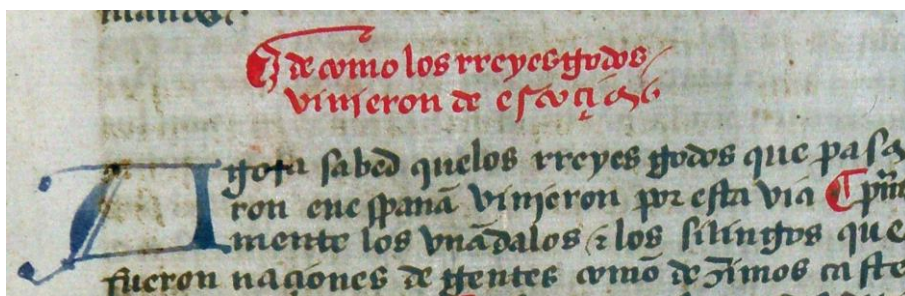 ¶ de como los rreyes godos
vinieron de escoçia
Agora sabed quelos rreyes godos que pasa
ron enespanã vinieron por esta via ¶ prim̃a
mente los vnãdalos & los silingos que
fueron naciones de gentes comõ dezimos caste